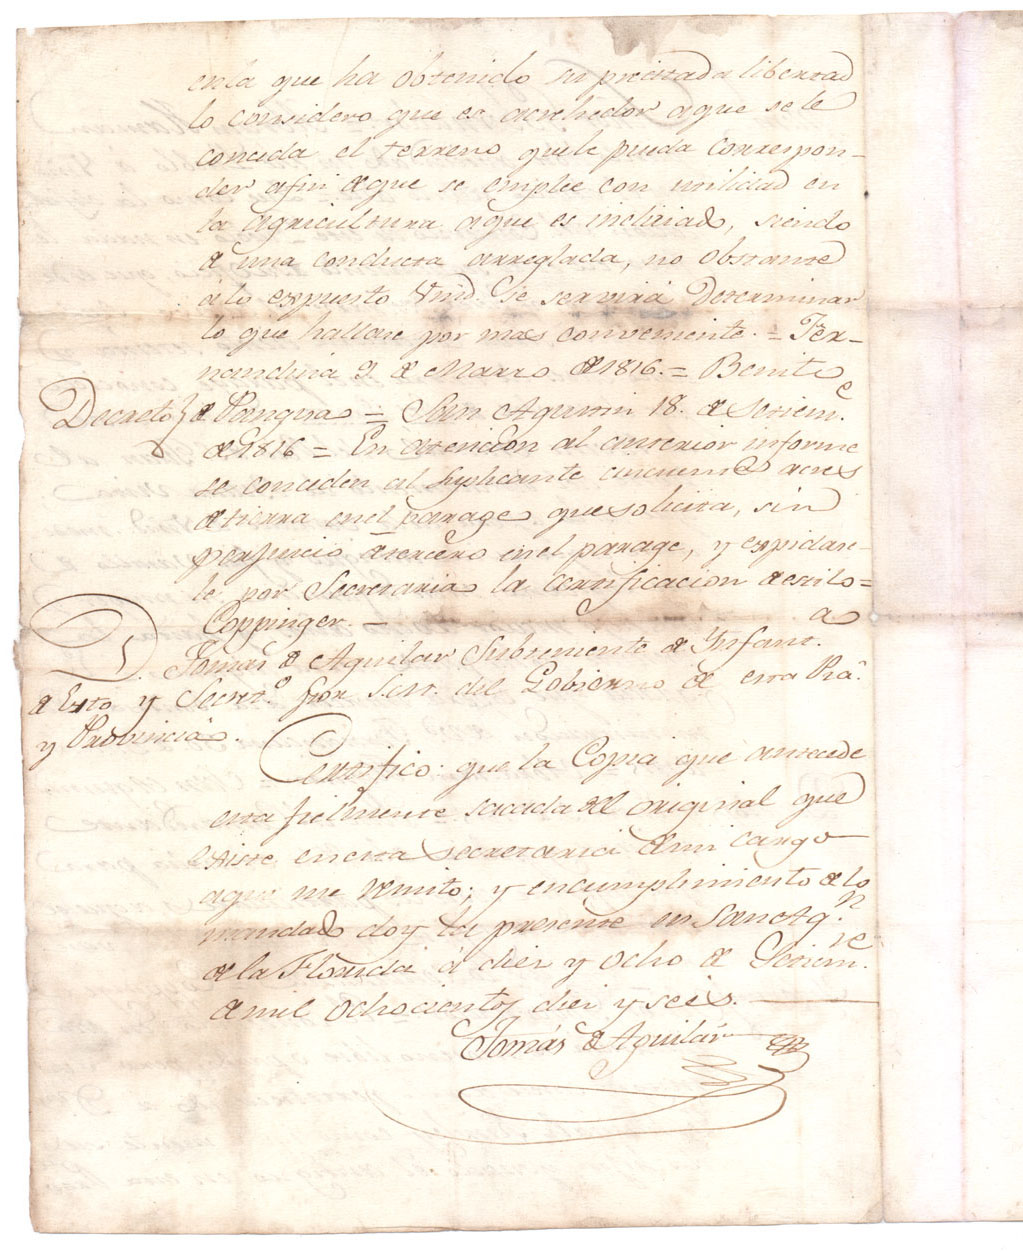 enla que ha obtenido su precitada libertad
lo considero que es acrehedor a que se le
conceda el terreno quele pueda correspon-
der afin deque se emplee con utilidad en
la agricultura aque es inclinado, siendo
de una conducta arreglada, no obstante
álo expuesto Vmd. se servirá Determinar
lo que hallare por mas conveniente. = Fer-
nandina 9 de Marzo de 1816. = Benito
Decreto } de Pangua = San Agustin 18. de Setiem.e
de 1816 = En atencion al anterior informe
se conceden al Suplicante cincuenta acres
de tierra enel parage que solicita, sin
perjuicio de tercero en el parage, y expidase-
le por Secretaria la certificacion de estilo =
Coppinger. —
Dn. Tomas de Aguilar Subteniente de Infant.a
de Exto y Secret.o por S.M. del Gobierno de esta Pza.
y Provincia.
Certifico: que la Copia que antecede
esta fielmente sacada del original que
existe en esta secretaria de mi cargo
aque me remito; y en cumplimiento de lo
mandado doy la presente en San Ag.n
de la Florida á diez y ocho de Setiem.re
de mil ochocientos diez y seis. —
Tomás de Aguilar